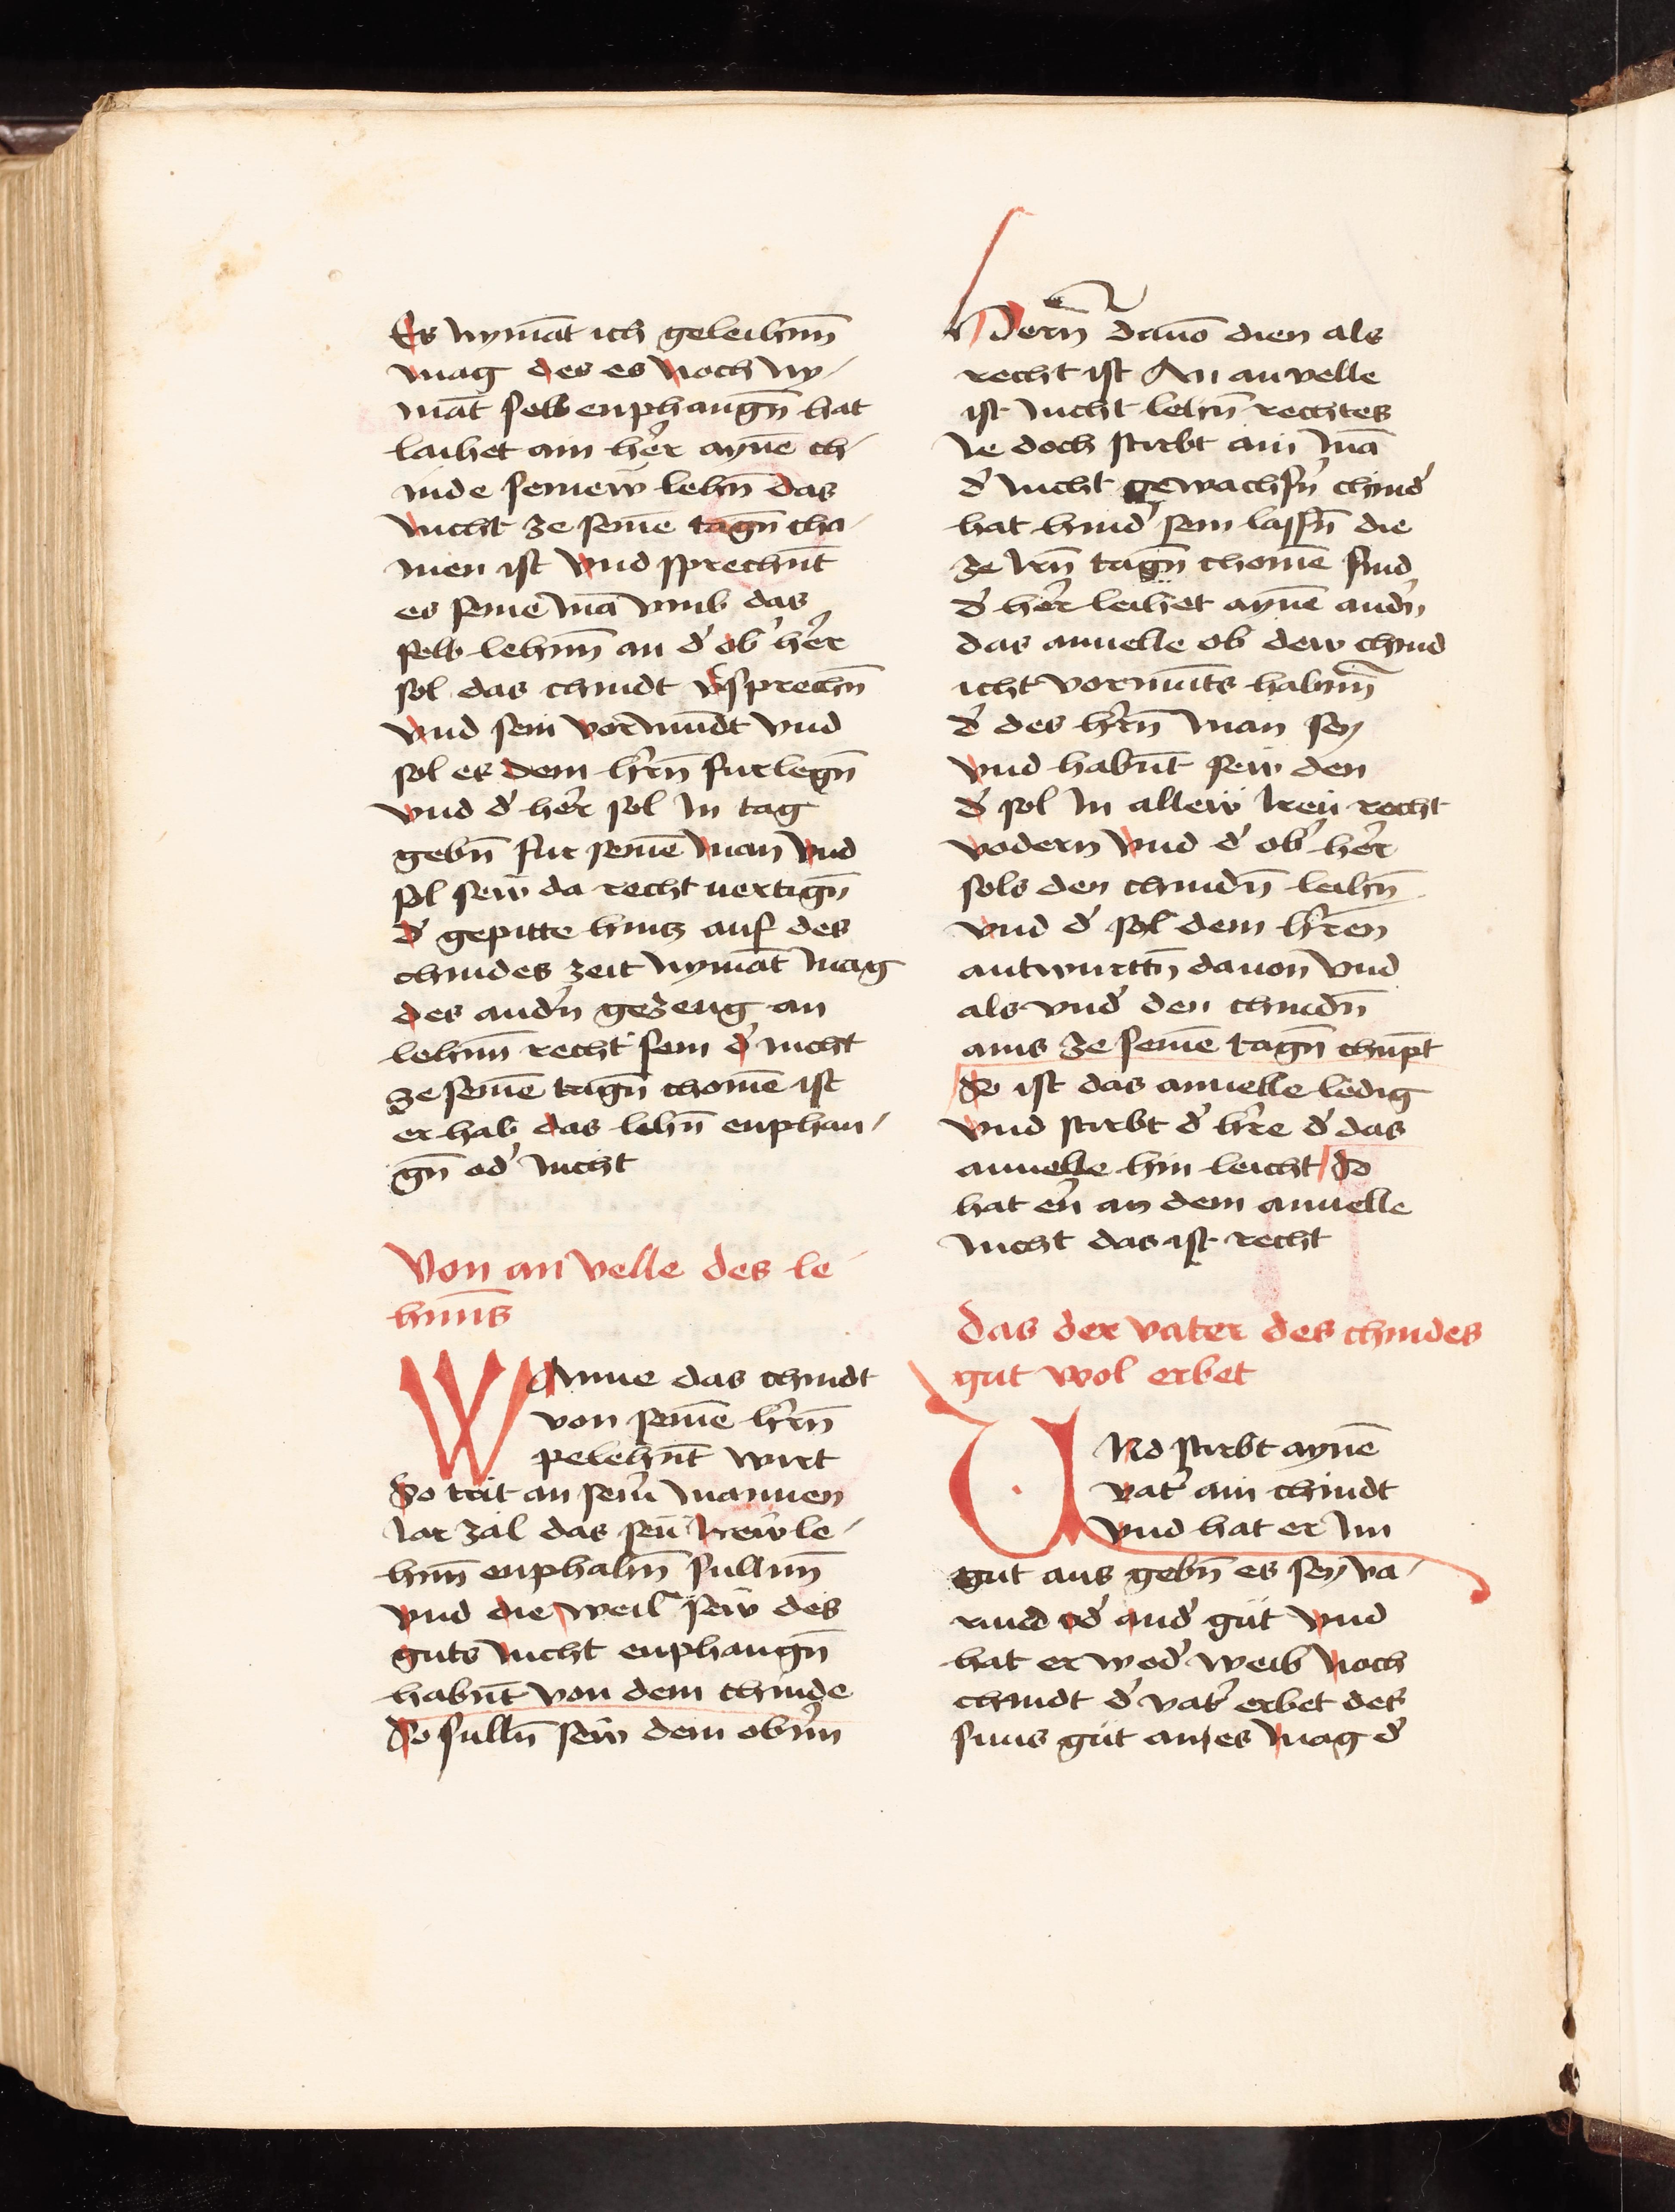 Es nymāt ich geleihnn̄
mag des es noch ny-
māt selb enphangn̄ hat
laihet ain her̄ aynē ch-
inde seinew lehn̄ das
nicht ze seinē tagn̄ cho-
men ist vnd sprechnt̄
es seine mā vmb das
selb lehnn̄ an d' ob' her̄
sol das chindt v'sprechn̄
vnd sein vormūdt vnd
sol es dem hrn̄ furlegn̄
vnd d' her̄ sol in tag
gebn̄ fur seinē man vnd
sol sew da recht vertign̄
d' gepitte hintz auf des
chindes zeit nymāt mag
des and'n gezeug an
lehnn̄ recht sein d' nicht
ze seinē tagn̄ chomē ist
er hab das lehn̄ enphan-
gn̄ od' nicht
Von an velle des le
hnns̄
WAnne das chindt
von seinē hrn̄
pelehnt̄ wirt
So trit an sein' mannen
Jar zal das seu irew le-
hnn̄ enphahn̄ sullnn̄
vnd die weil sew des
guts nicht enphangn̄
habnt̄ von dem chinde
So sulln̄ sew dem ob'nn
hern̄ dauō dien als
recht ist An anvelle
ist nicht lehn̄ rechtes
Je doch stirbt ain mā
d' nicht gewachsn̄ chind'
hat hind' sein lassn̄ die
ze irn̄ tagn̄ chomē sind
d' her̄ leihet aynē and'n
das anuelle ob dew chind
icht vormūts habnn̄
d' des hrn̄ man sey
vnd habnt̄ sew den
d' sol in allew ireu recht
vodern vnd d' ob' her̄
sols den chindn̄ leihn̄
vnd d' sol dem hr̄en
antwurttn̄ dauon vnd
als vnd' den chindn̄
ains ze seinē tagn̄ chupt̄
So ist das anuelle ledig
vnd stirbt d' hr̄e d' das
anuelle hin leicht So
hat en' an dem anuelle
nicht das ist recht
das der vater des chindes
gut wol erbet
UNd stirbt aynē
vat' ain chindt
vnd hat er im
gut aus gebn̄ es sey va-
rund od' and' gut vnd
hat er wed' weib noch
chindt d' vat' erbet des
suns gut an es mag d'